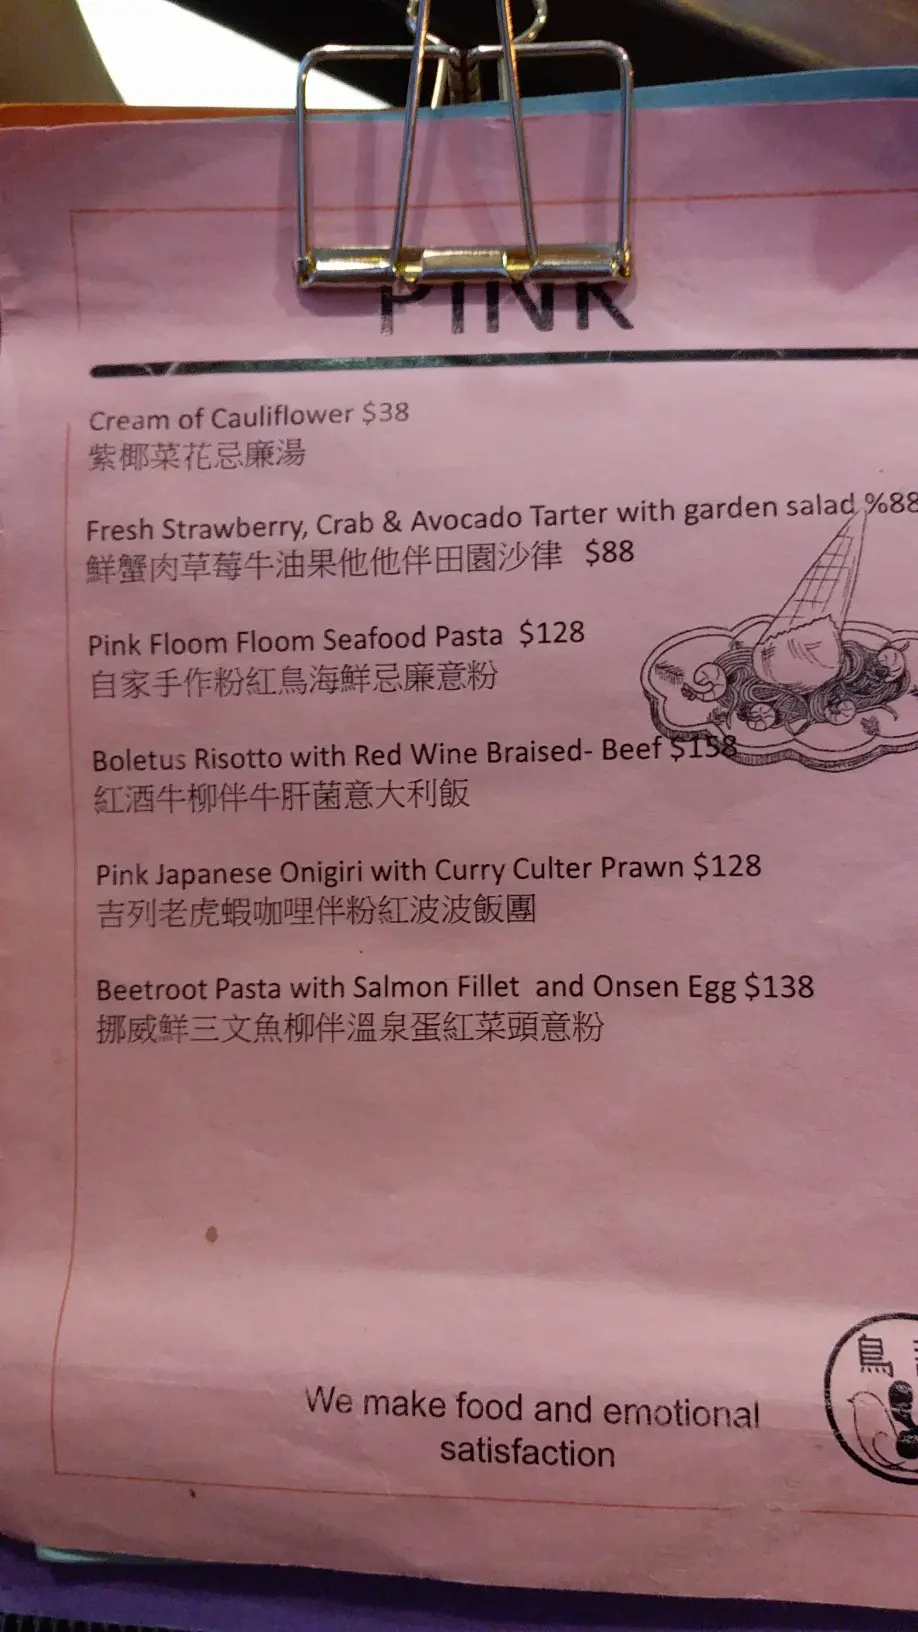 PINK
Cream of Cauliflower $38
紫椰菜花忌廉湯
Fresh Strawberry, Crab & Avocado Tarter with garden salad %88
鮮蟹肉草莓牛油果他他伴田園沙律 $88
Pink Floom Floom Seafood Pasta $128
自家手作粉紅鳥海鮮忌廉意粉
Boletus Risotto with Red Wine Braised- Beef $158
紅酒牛柳伴牛肝菌意大利飯
Pink Japanese Onigiri with Curry Culter Prawn $128
吉列老虎蝦咖哩伴粉紅波波飯團
Beetroot Pasta with Salmon Fillet and Onsen Egg $138
挪威鮮三文魚柳伴溫泉蛋紅菜頭意粉
We make food and emotional
satisfaction
鳥